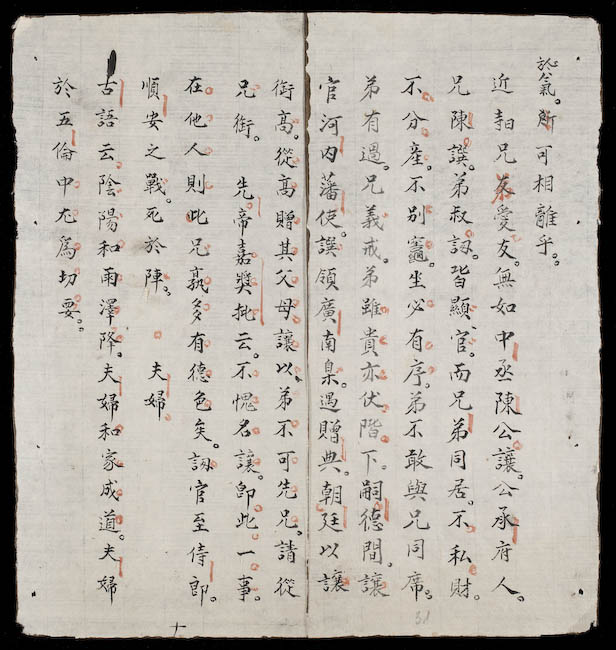 於氣。可相離乎。
近兄友愛友。無如中丞陳公讓。公承府人。
兄陳譔。弟叔訒。皆顯官。而兄弟同居。不私財。
不分產。不別竈。坐必有序。弟不敢與兄同席。
弟有過。兄義戒。弟雖貴亦伏階下。嗣德間。讓
官河內藩使。譔領廣南臬。遇贈典。朝廷以讓
銜高。從高贈其父母讓以弟不可先兄。請從
兄銜。 先帝嘉獎批云。不愧名讓。即此一事。
在他人則此兄孰多有德色矣。訒官至侍郎。
順安之戰。死於陣。 夫婦
古語云陰陽和雨澤降。夫婦和家成道。夫婦
於五倫中尤爲切要。
31